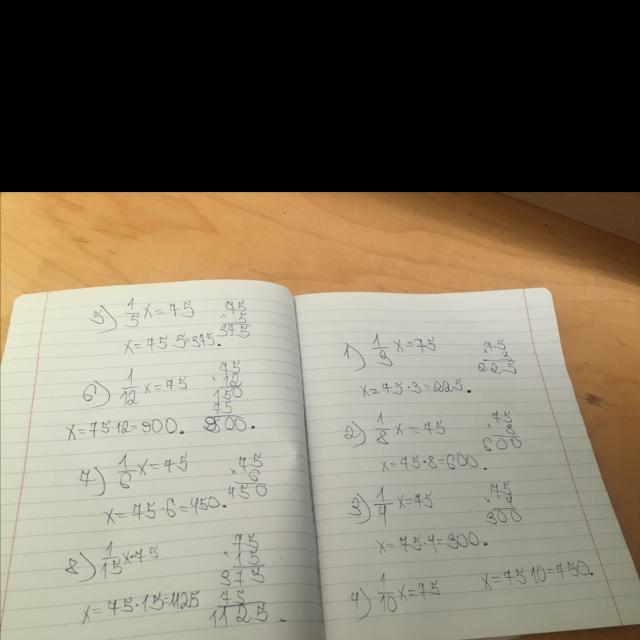 5) 1/5 x = 75
75
· 5
375
x = 75·5 = 375.
6) 1/12 x = 75
75
· 12
150
75
900.
x = 75·12 = 900.
7) 1/6 x = 75
75
· 6
450
x = 75·6 = 450.
8) 1/15 x = 75
75
· 15
375
75
1125.
x = 75·15 = 1125
1) 1/3 x = 75
75
· 3
225
x = 75·3 = 225.
2) 1/8 x = 75
75
· 8
600
x = 75·8 = 600.
3) 1/4 x = 75
75
· 4
300
x = 75·4 = 300.
4) 1/10 x = 75
x = 75·10 = 750.